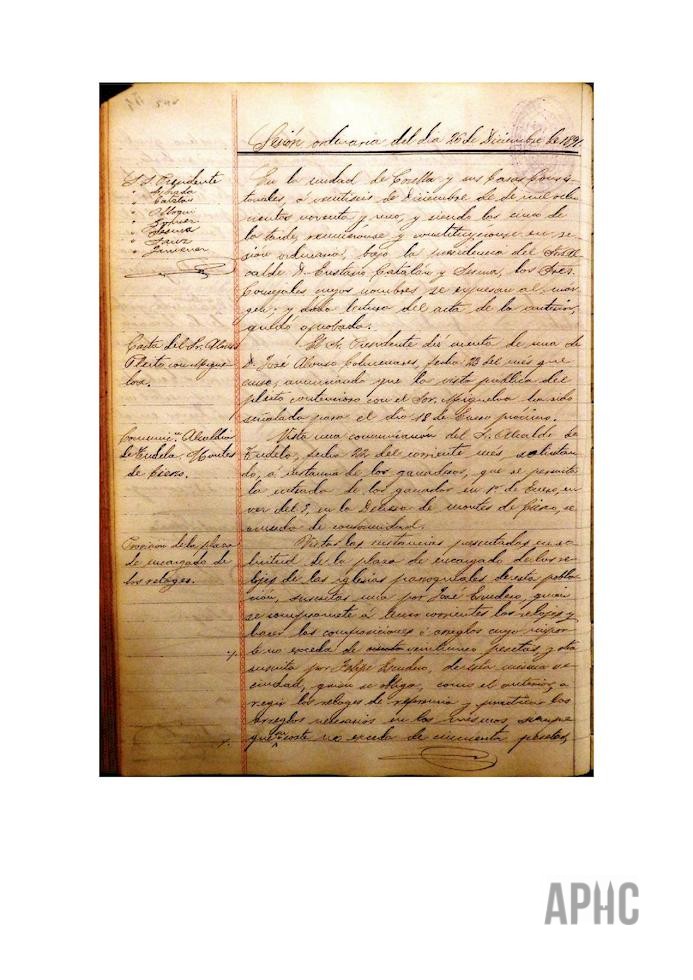 Sesión ordinaria del dia 26 de Diciembre de 1891
S. S. Presidente
" Catalán
" Alloqui
" Sanz
" Jimenez
En la ciudad de Corella y sus Casas Consis-
toriales, á veintiseis de Diciembre de de mil ocho-
cientos noventa y uno, y siendo las cinco de
la tarde, reunieronse y constituyeronse en se-
sión ordinaria, bajo la presidencia del Sr. Al-
calde D. Eustasio Catalán y los Sres.
Concejales cuyos nombres se espresan al mar-
gen; y dada lectura del acta de la anterior,
quedó aprobada.
Carta del Sr. Alonso
Pleito con Migue-
loa.
El Sr. Presidente dió cuenta de una de
D. José Alonso Colmenares, fecha 23 del mes que
cursa, anunciando que la vista publica del
pleito contencioso con el Sor. Migueloa ha sido
señalada para el dia 18 de Enero próximo.
Comunic.ⁿ Alcaldia
de Tudela. Montes
de Cierzo.
Vista una comunicación del S. Alcalde de
Tudela, fecha 22 del corriente mes solicitan-
do, á instancia de los ganaderos, que se permita
la entrada de los ganados en 1º de Enero, en
vez del 5, en la Dehesa de montes de Cierzo, se
acuerda de conformidad.
Provision de la plaza
de encargado de
los reloges.
Vistas las instancias presentadas en so-
licitud de la plaza de encargado de los re-
lojes de las iglesias parroquiales de esta pobla-
ción, suscritas una por José Escudero, quien
se compromete á tener corrientes los relojes y
hacer las composiciones ó arreglos cuyo impor-
te no exceda de veinticinco pesetas, y otra
suscrita por Felipe Escudero, de esta misma ve-
cindad, quien se obliga, como el anterior, a
regir los reloges de referencia y practicar los
arreglos necesarios en los mismos, siempre
que su coste no exceda de cincuenta pesetas,
APHC